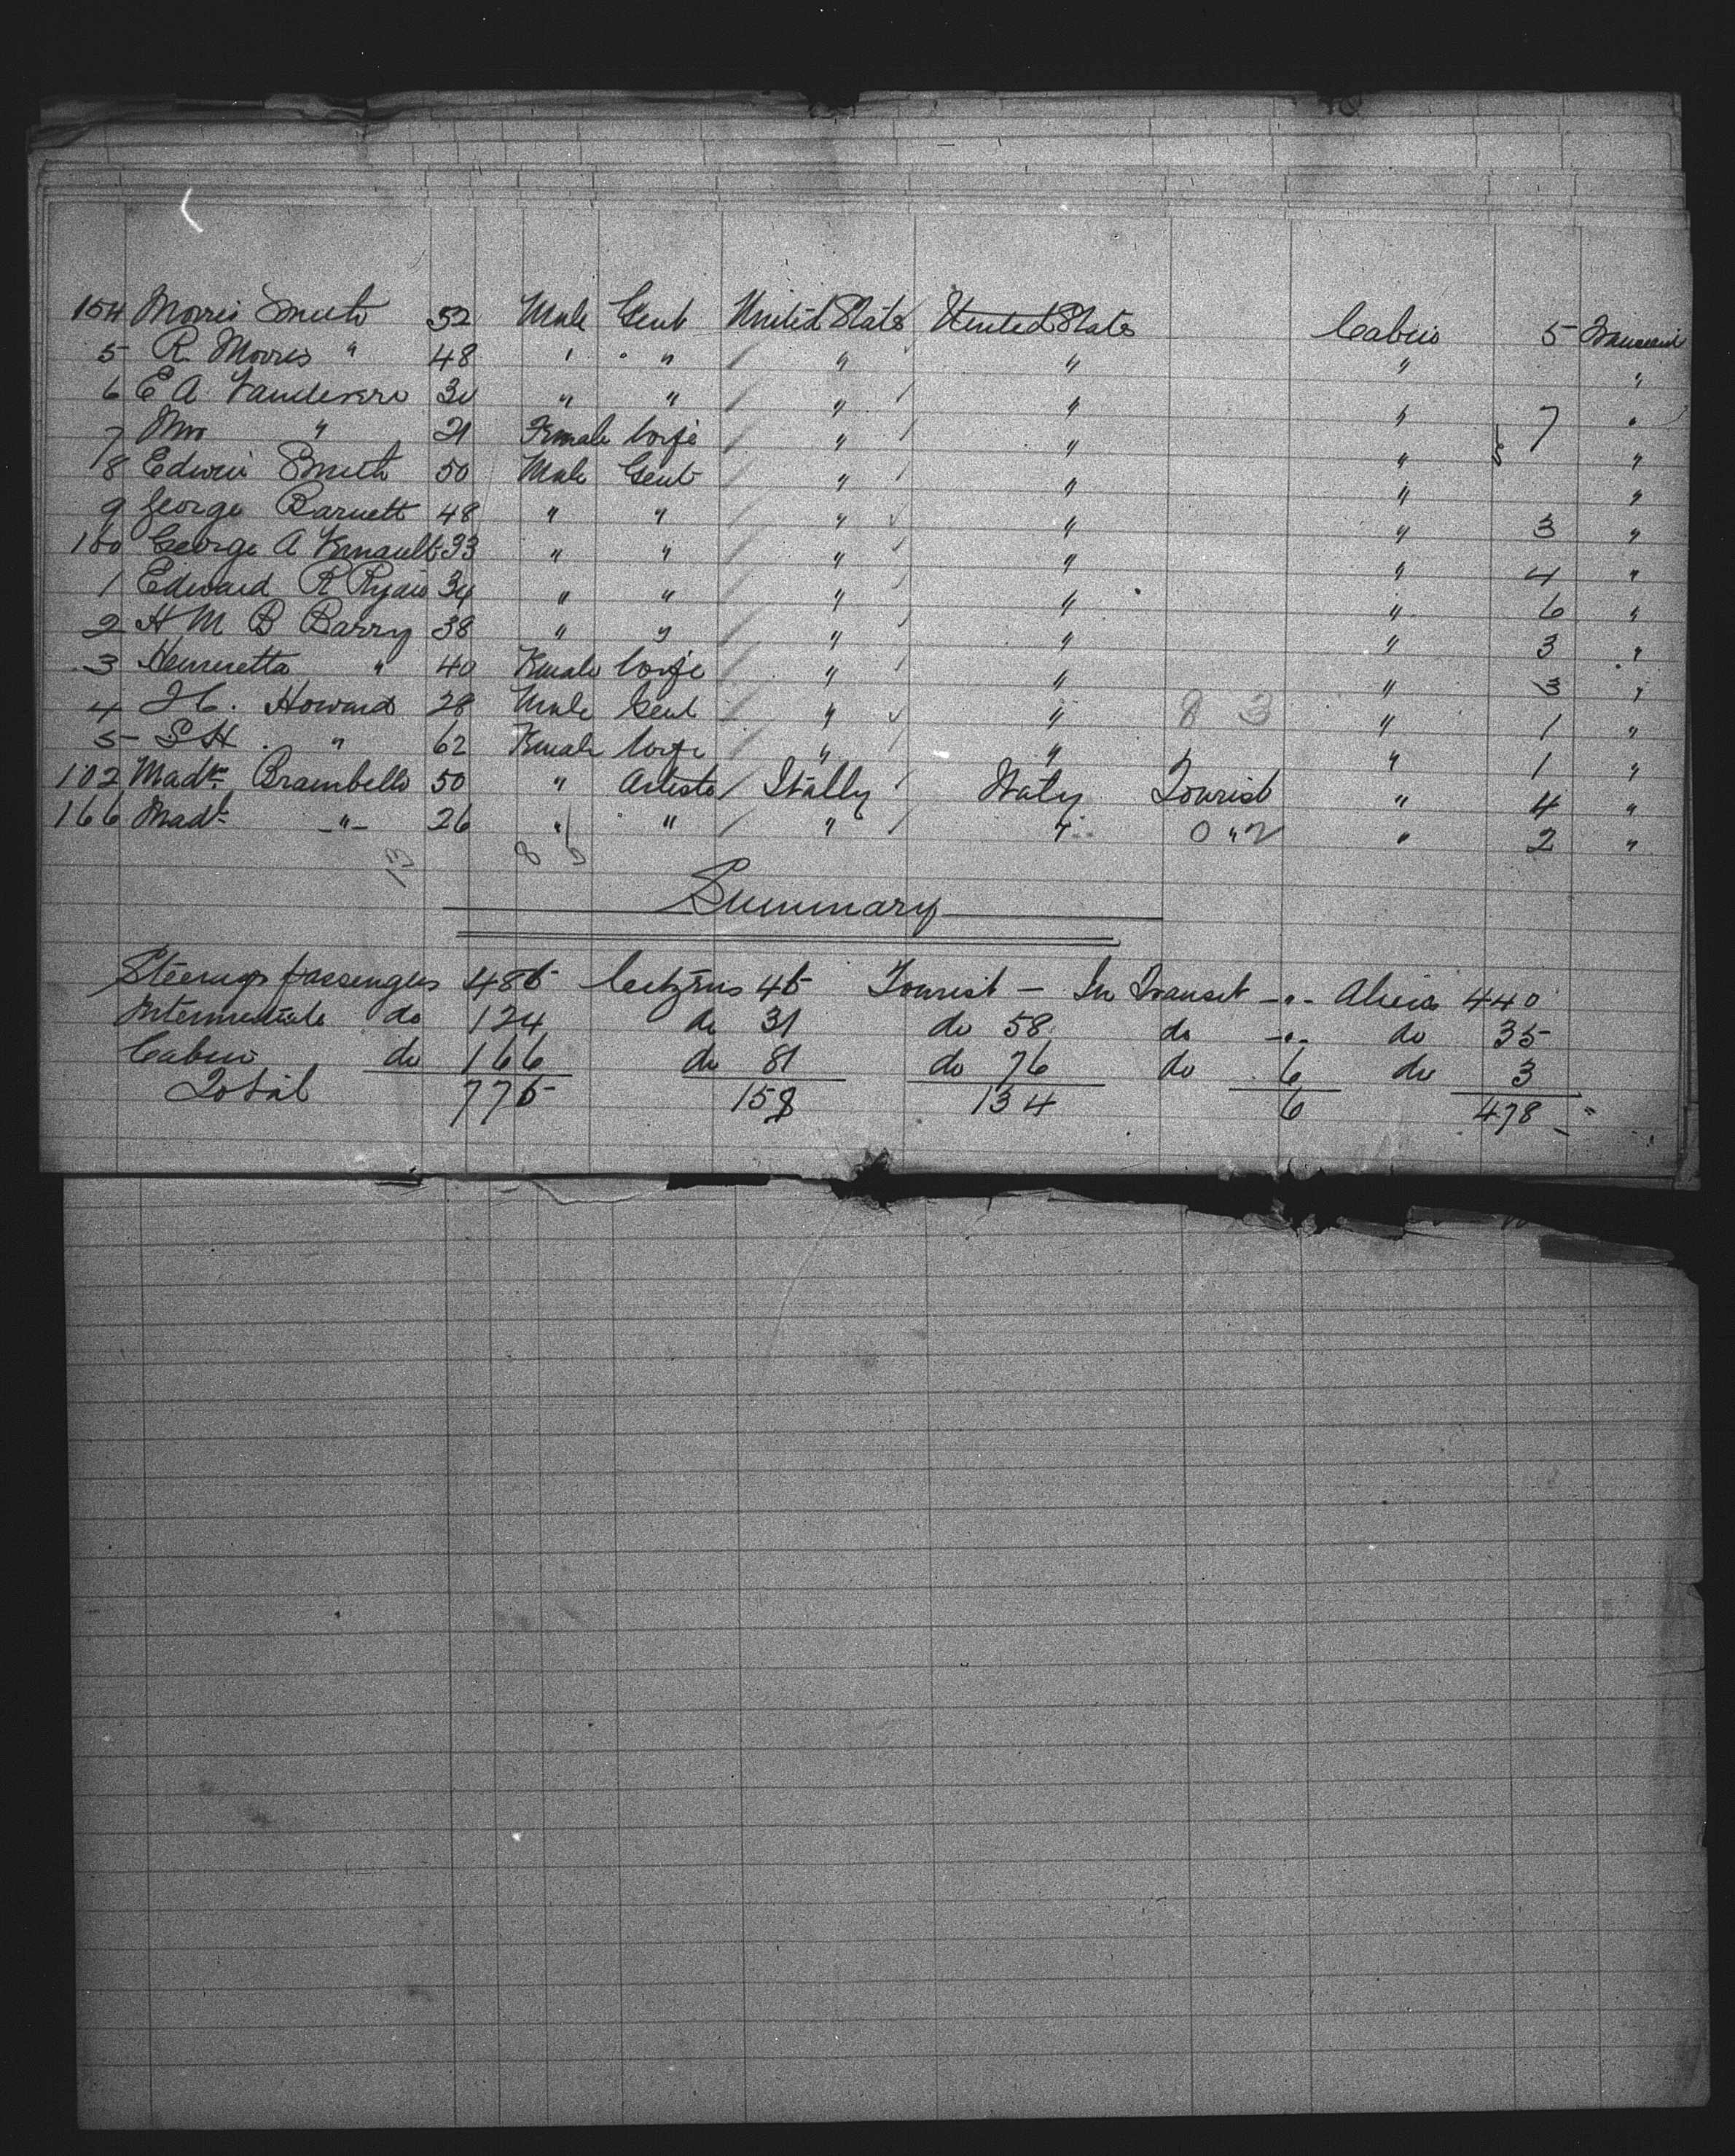 154 Morris Smith 52 Male Gent United States United States Cabin 5
5 R. Morris " 48 " " " " " "
6 E A Vandever 30 " " " " " 7 "
7 Mrs " 21 Female Wife " " " "
8 Edwin Smith 50 Male Gent " " " "
9 George Barnett 48 " " " " " 3 "
160 George A 33 " " " " " 4 "
1 Edward R Ryan 34 " " " " " 6 "
2 H M B Barry 38 " " " " " 3 "
3 Henrietta " 40 Female Wife " " " 3 "
4 H. Howard 28 Male Gent " " 8 3 " 1 "
5 S H. " 62 Female Wife " " " 1 "
102 Madme Brambella 50 " Artiste Itally Italy Tourist " 4 "
166 Madl -"- 26 " " " " 0 " 2 " 2 "
13 8 5
Summary
Steerage passengers 485 Citizens 45 Tourist — In Transit -"- Aliens 440
Intermediate do 124 do 31 do 58 do -"- do 35
Cabin do 166 do 81 do 76 do 6 do 3
Total 775 158 134 6 478